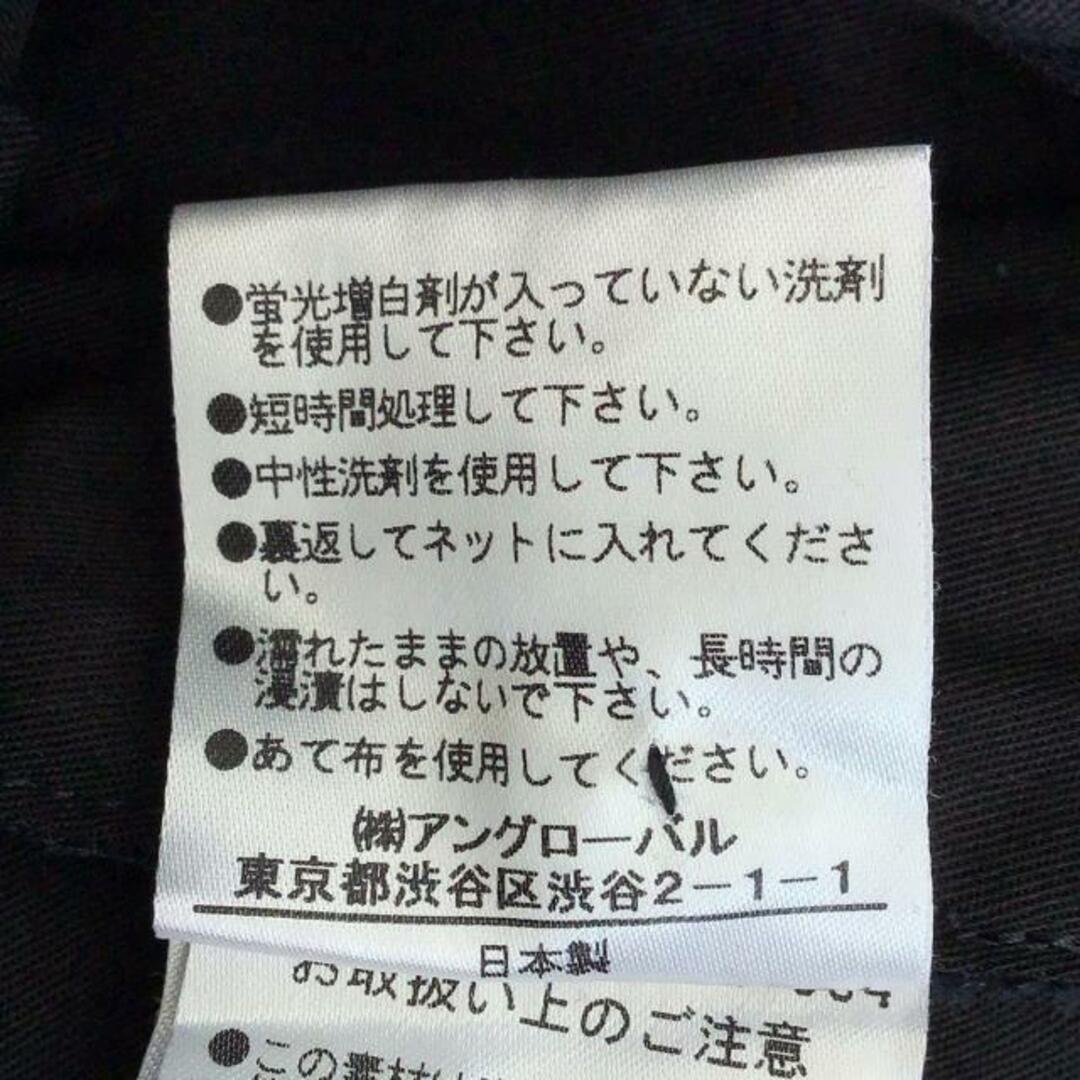 ●蛍光増白剤が入っていない洗剤
を使用して下さい。
●短時間処理して下さい。
●中性洗剤を使用して下さい。
●裏返してネットに入れてくださ
い。
●濡れたままの放置や、長時間の
浸漬はしないで下さい。
●あて布を使用してください。
㈱アングローバル
東京都渋谷区渋谷2－1－1
日本製
お取扱い上のご注意
●この素材は